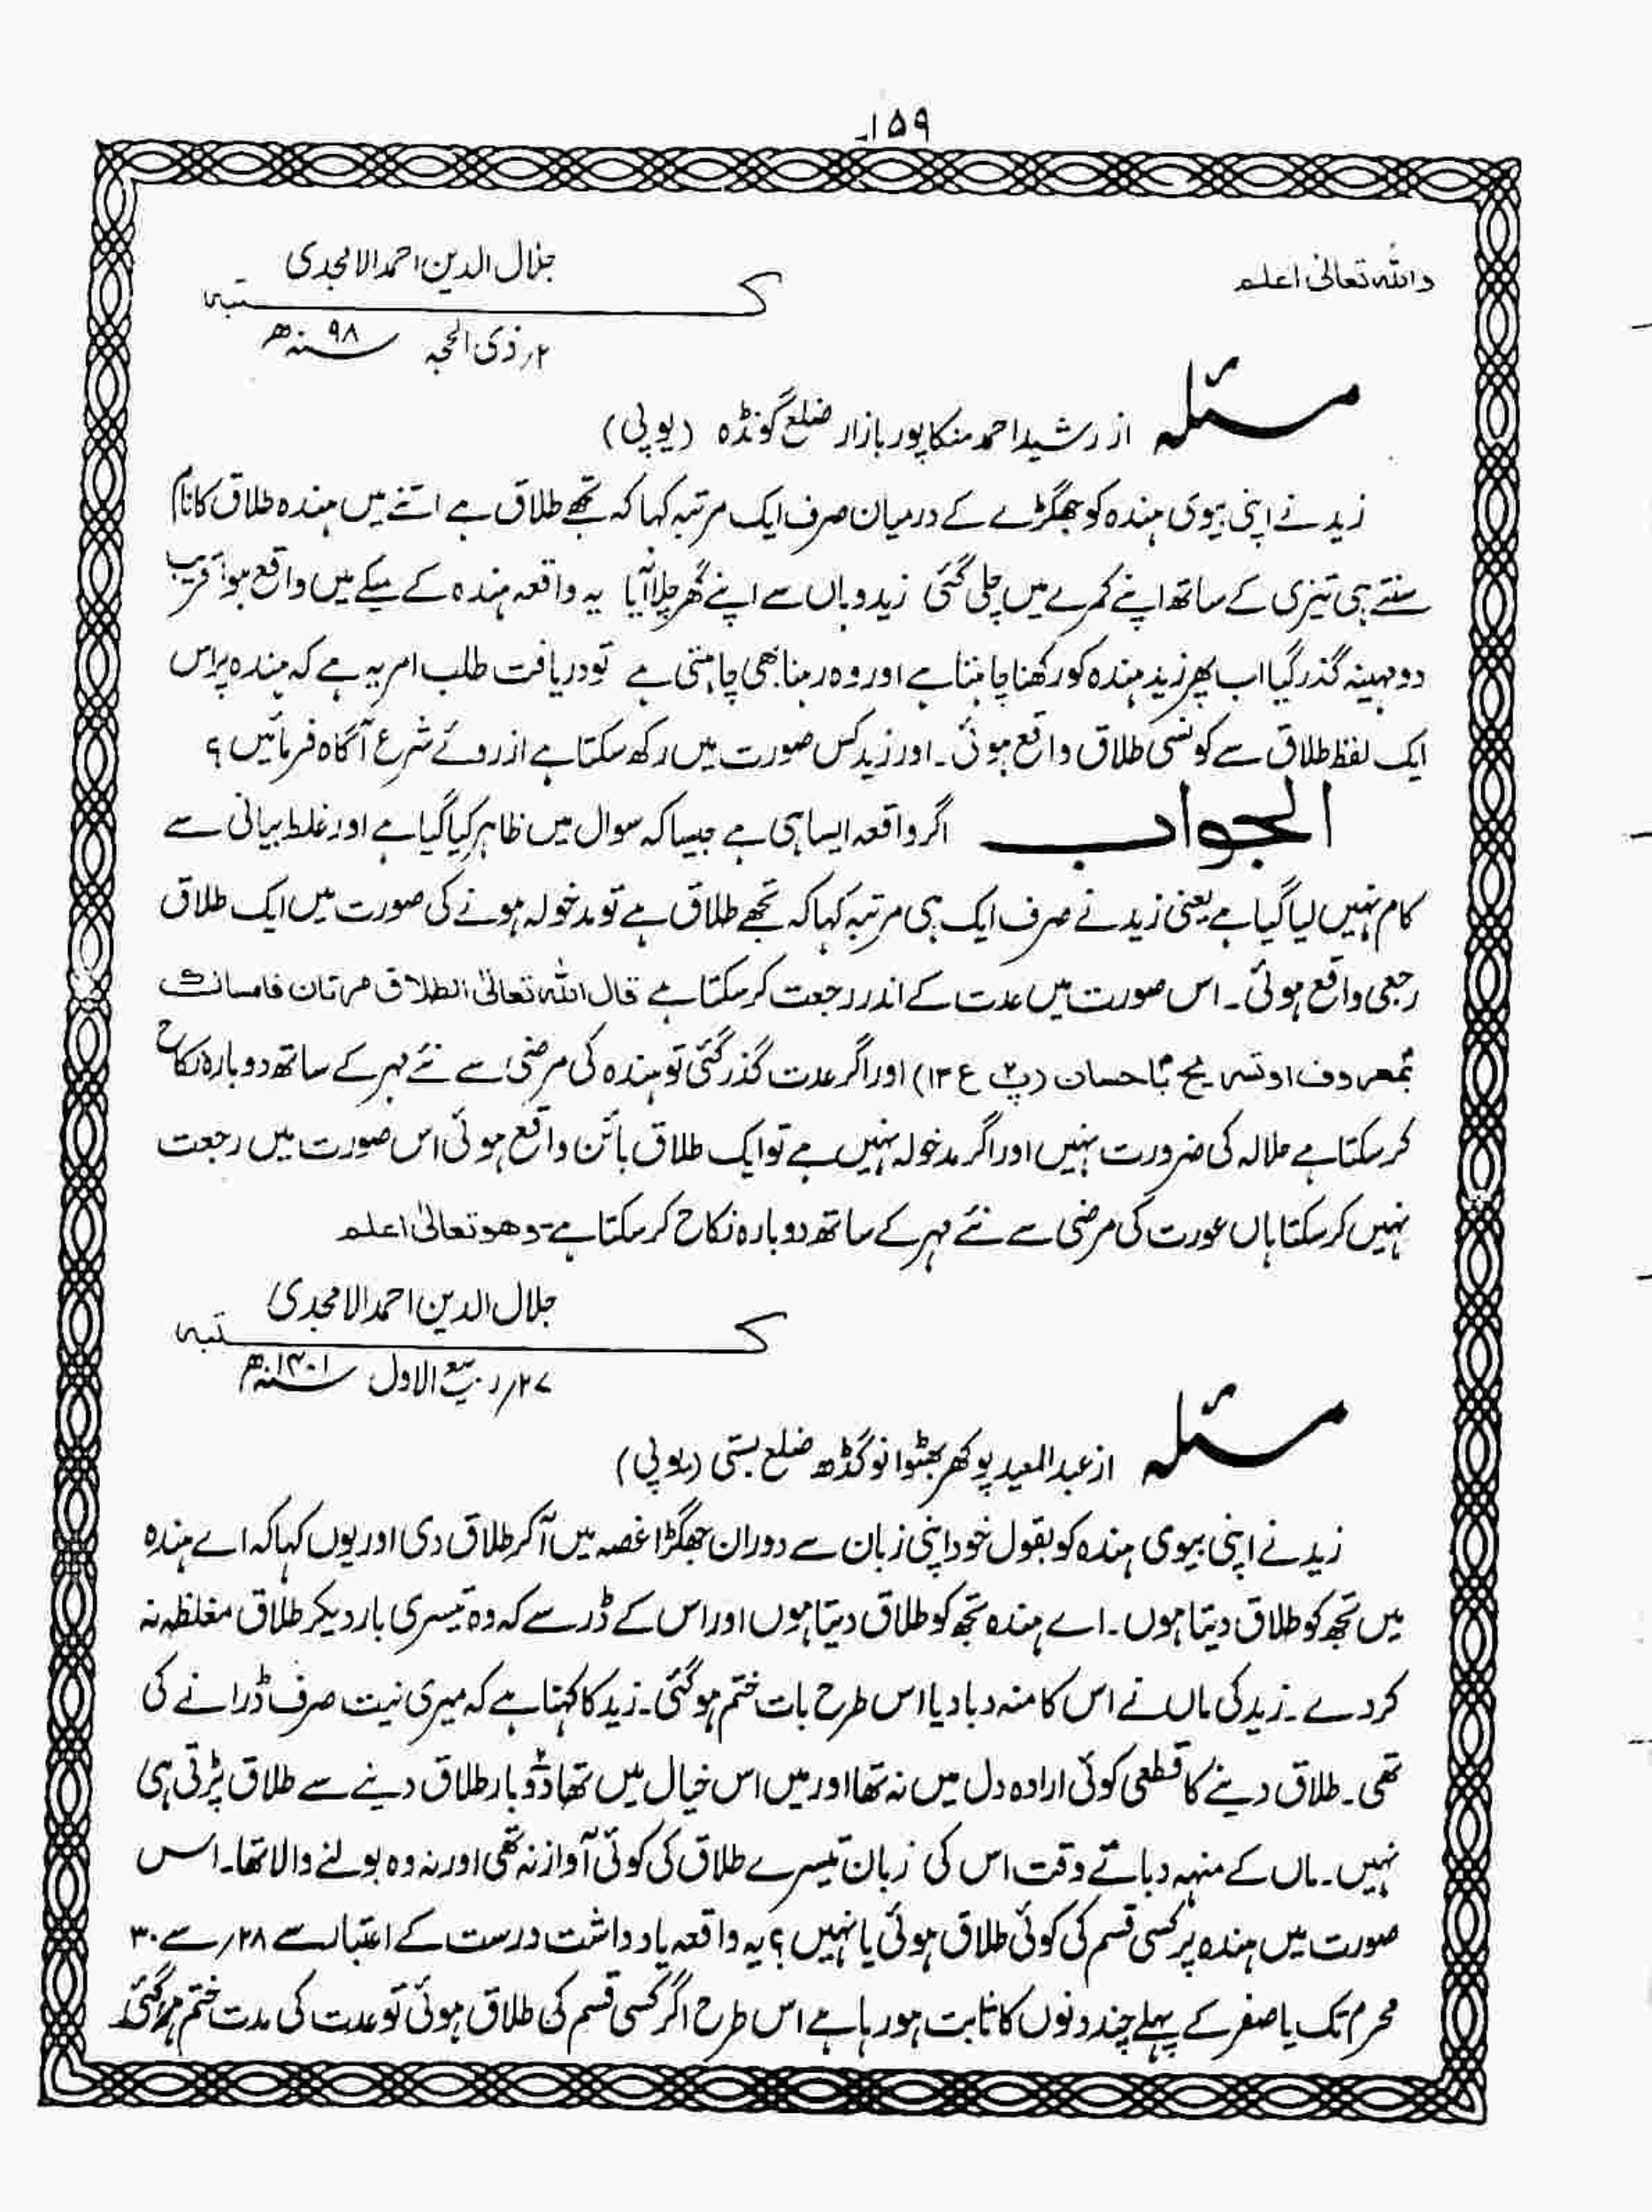 ۱۵۹
واللہ تعالیٰ اعلم
جلال الدین احمد الامجدی
کتبہ
۲؍ذی الحجہ ۹۸ سنہ ھ
مسئلہ از رشید احمد منکاپور بازار ضلع گونڈہ (یوپی)
زید نے اپنی بیوی ہندہ کو جھگڑے کے درمیان صرف ایک مرتبہ کہا کہ تجھے طلاق ہے اتنے میں ہندہ طلاق کا نام
سنتے ہی تیزی کے ساتھ اپنے کمرے میں چلی گئی زید وہاں سے اپنے گھر چلا آیا یہ واقعہ ہندہ کے میکے میں واقع ہوا قریب
دو مہینہ گذر گیا اب پھر زید ہندہ کو رکھنا چاہتا ہے اور وہ رہنا بھی چاہتی ہے تو دریافت طلب امر یہ ہے کہ ہندہ پر اس
ایک لفظ طلاق سے کونسی طلاق واقع ہوئی۔ اور زید کس صورت میں رکھ سکتا ہے از روئے شرع آگاہ فرمائیں ؟
الجواب اگر واقعہ ایسا ہی ہے جیسا کہ سوال میں ظاہر کیا گیا ہے اور غلط بیانی سے
کام نہیں لیا گیا ہے یعنی زید نے صرف ایک ہی مرتبہ کہا کہ تجھے طلاق ہے تو مدخولہ ہونے کی صورت میں ایک طلاق
رجعی واقع ہوئی۔ اس صورت میں عدت کے اندر رجعت کر سکتا ہے قال اللہ تعالیٰ الطلاق مرتان فامساك
بمعروف او تسریح باحسان (پ۲ ع۱۳) اور اگر عدت گذر گئی تو ہندہ کی مرضی سے نئے مہر کے ساتھ دوبارہ نکاح
کر سکتا ہے حلالہ کی ضرورت نہیں اور اگر مدخولہ نہیں ہے تو ایک طلاق بائن واقع ہوئی اس صورت میں رجعت
نہیں کر سکتا ہاں عورت کی مرضی سے نئے مہر کے ساتھ دوبارہ نکاح کر سکتا ہے۔ وھو تعالیٰ اعلم
جلال الدین احمد الامجدی
کتبہ
۲۷؍ربیع الاول ۱۴۰۱ سنہ ھ
مسئلہ از عبد المعید پوکھر بھٹوا نوگڈھ ضلع بستی (یوپی)
زید نے اپنی بیوی ہندہ کو بقول خود اپنی زبان سے دوران جھگڑا غصہ میں آکر طلاق دی اور یوں کہا کہ اے ہندہ
میں تجھ کو طلاق دیتا ہوں۔ اے ہندہ تجھ کو طلاق دیتا ہوں اور اس کے ڈر سے کہ وہ تیسری بار دیکر طلاق مغلظہ نہ
کر دے۔ زید کی ماں نے اس کا منہ دبا دیا اس طرح بات ختم ہو گئی۔ زید کا کہنا ہے کہ میری نیت صرف ڈرانے کی
تھی۔ طلاق دینے کا قطعی کوئی ارادہ دل میں نہ تھا اور میں اس خیال میں تھا دو بار طلاق دینے سے طلاق پڑتی ہی
نہیں۔ ماں کے منہہ دباتے وقت اس کی زبان تیسرے طلاق کی کوئی آواز نہ تھی اور نہ وہ بولنے والا تھا۔ اس
صورت میں ہندہ پر کسی قسم کی کوئی طلاق ہوئی یا نہیں ؟ یہ واقعہ یاد داشت درست کے اعتبار سے ۲۸؍ سے ۳۰
محرم تک یا صفر کے پہلے چند دنوں کا ثابت ہو رہا ہے اس طرح اگر کسی قسم کی طلاق ہوئی تو عدت کی مدت ختم ہو گئی۔